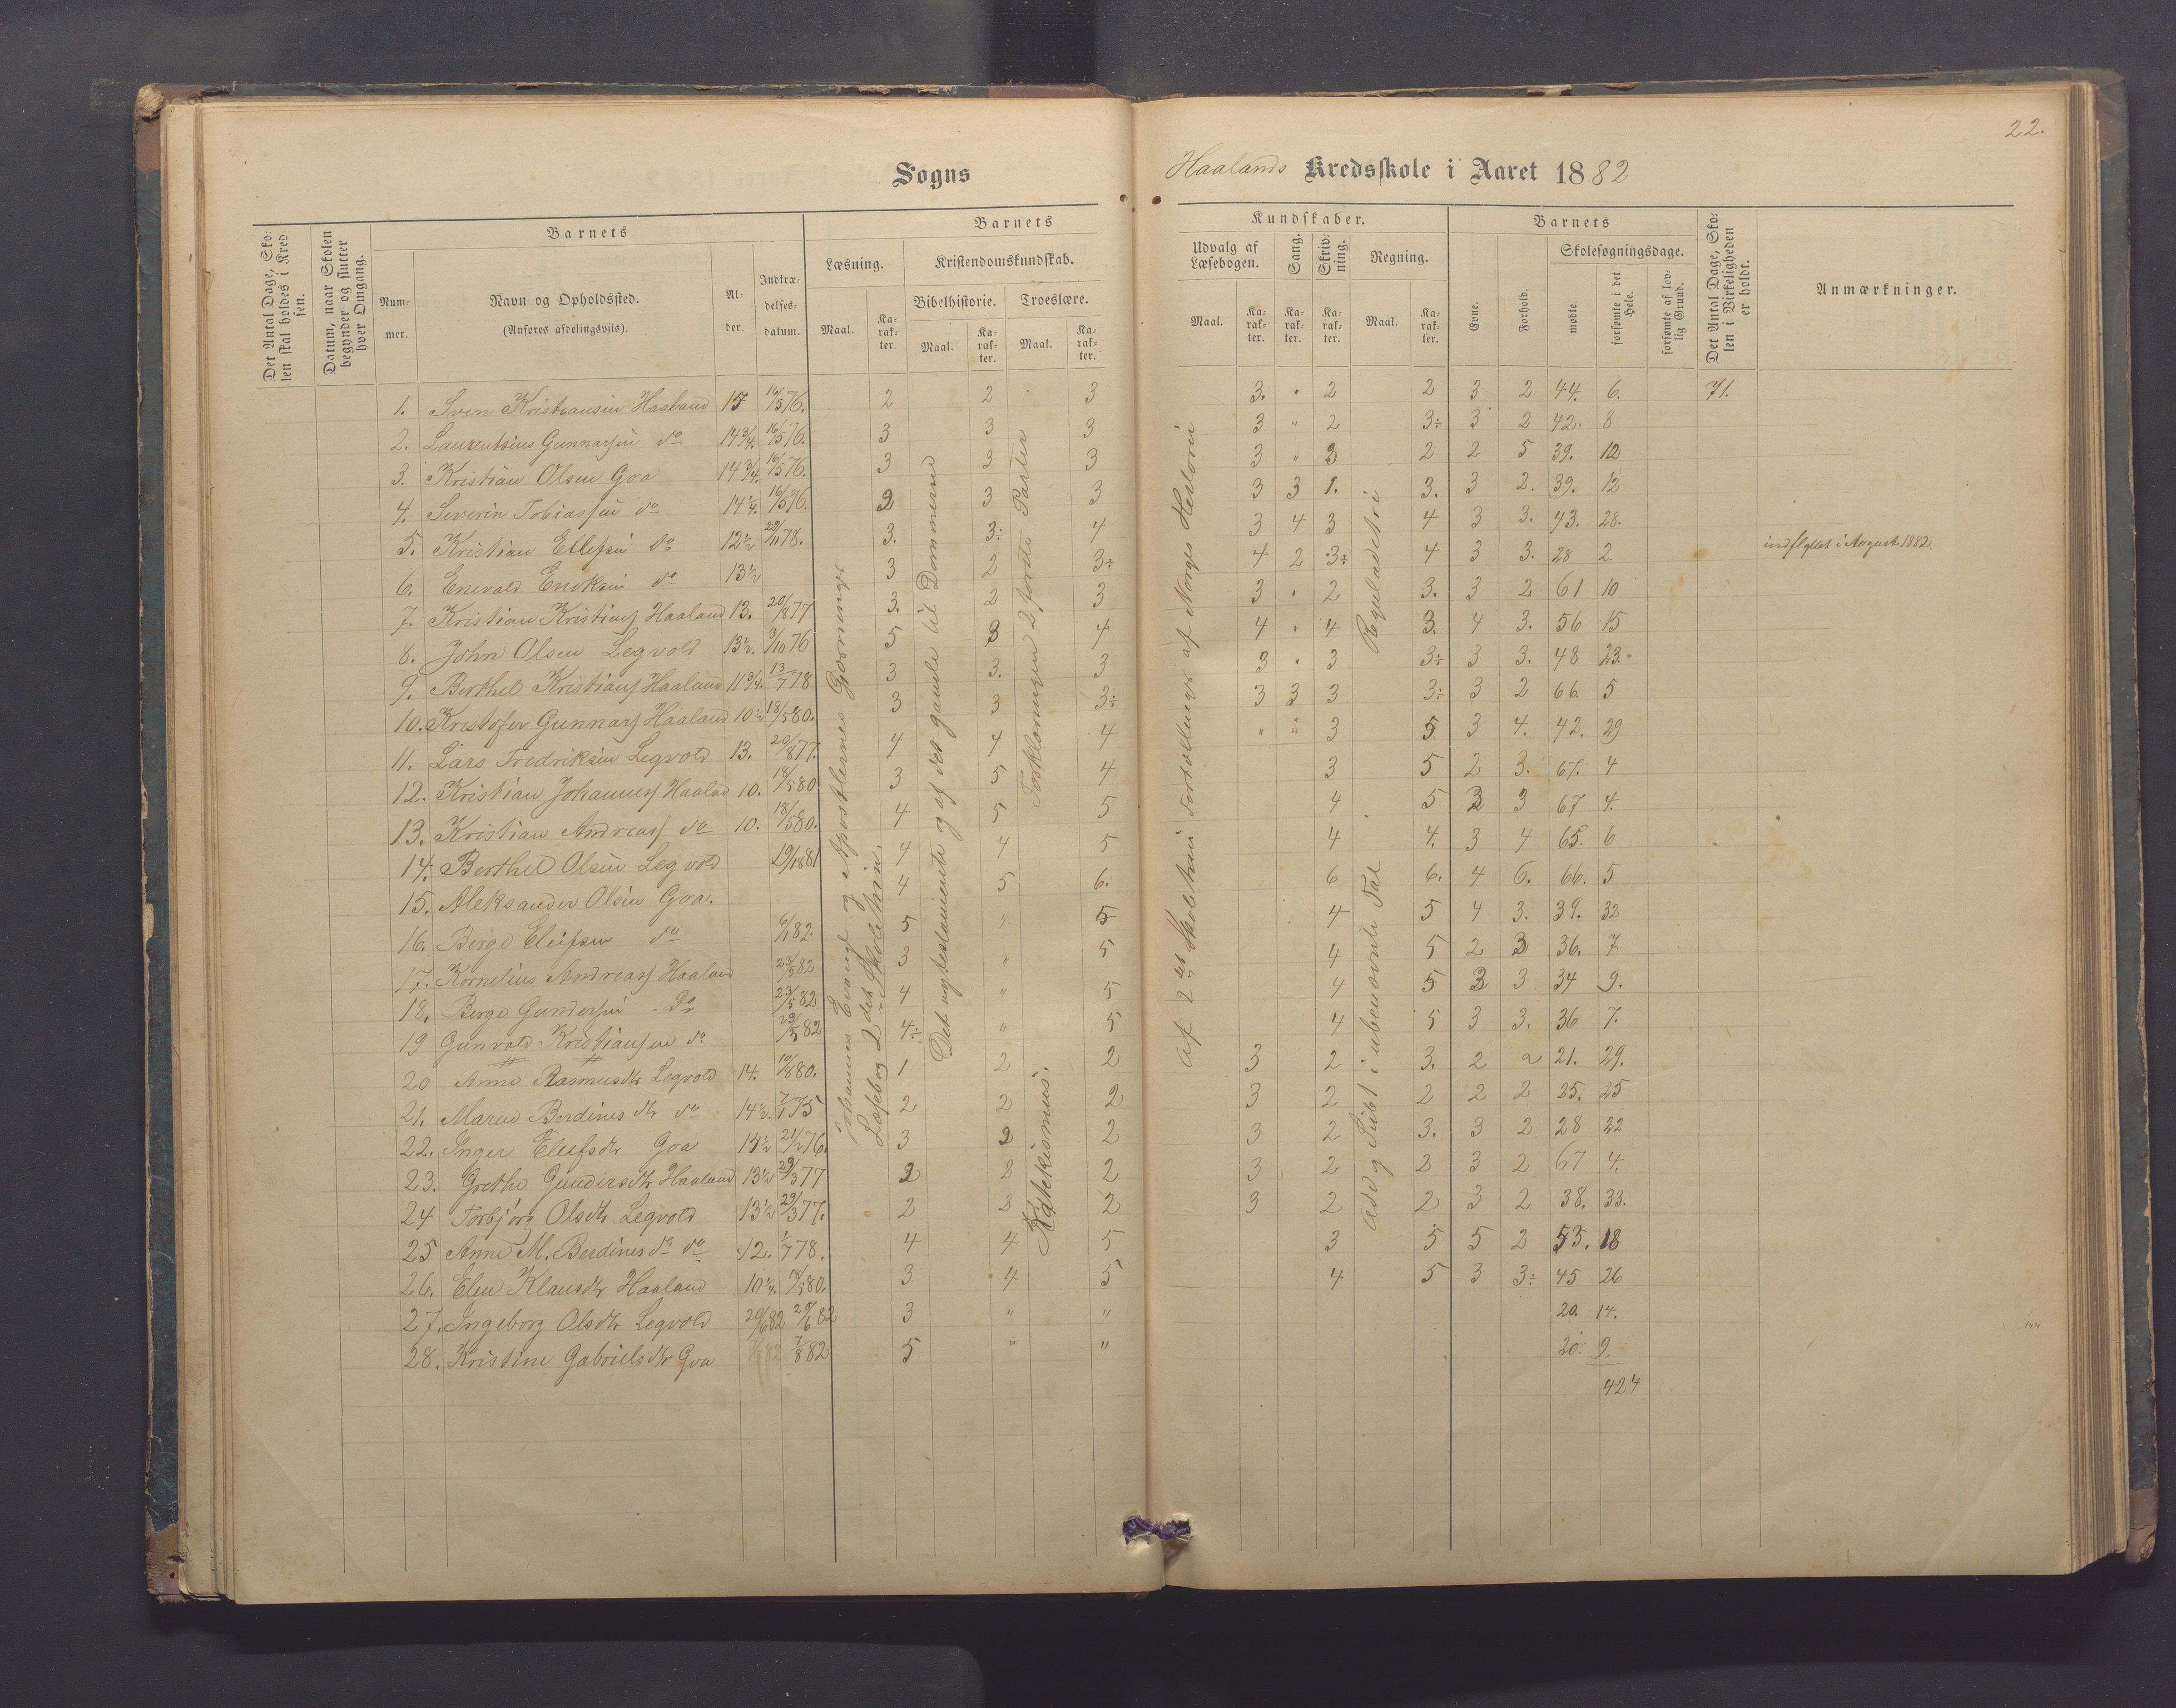 22.
Sogns
Haalands Kredsskole i Aaret 1882
Det Antal Dage, Sko-
len skal holdes i Kred-
sen.
Datum, naar Skolen
begynder og slutter
hver Omgang.
Barnets
Num-
mer.
Navn og Opholdssted.
(Anføres afdelingsviis).
Al-
der.
Indtræ-
delses-
datum.
Barnets
Læsning.
Kristendomskundskab.
Bibelhistorie. Troeslære.
Maal. Ka-
rak-
ter.
Maal. Ka-
rak-
ter.
Maal. Ka-
rak-
ter.
Kundskaber.
Udvalg af
Læsebogen.
Sang.
Skriv-
ning.
Regning.
Maal. Ka-
rak-
ter.
Ka-
rak-
ter.
Ka-
rak-
ter.
Maal. Ka-
rak-
ter.
Barnets
Evne.
Forhold.
Skolesøgningsdage.
mødte
forsømte i det
Hele.
forsømte af lov-
lig Grund.
Det Antal Dage, Sko-
len i Virkeligheden
er holdt.
Anmærkninger.
1. Sven Kristiansen Haaland 15 16/5 76. 2 2 3 3. " 2 2 3 2 44. 6. 71.
2. Laurentsius Gunnarsen do 14 3/4. 16/5 76. 3 3 3 3 " 2 3÷ 3 2 42. 8
3. Kristian Olsen Goa 14 3/4. 16/5 76. 3 3 3 3 " 3 2 2 5 39. 12
4. Severin Tobiassen do 14 1/4. 16/5 76. 2 3 3 3 3 1. 3. 3 2. 39. 12
5. Kristian Ellefsen do 12 1/2 29/11 78. 3. 3÷ 4 3 4 3 4 3 3. 43. 28.
6. Enevald Eriksen do 13 1/2 3 2 3÷ 4 2 3÷ 4 3 3. 28 2 indflyttet i August 1882.
7. Kristian Kristians Haaland 13. 20/8 77 3. 2 3 3 " 2 3. 3 2 61 10
8. John Olsen Legvold 13 1/2. 3/10 76 5 3 4 4 " 4 3. 4 3. 56 15
9. Berthel Kristians Haaland 11 3/4. 13/7 78 3 3. 3 3 " 3 3÷ 3 3. 48 23.
10. Kristofer Gunnars Haaland 10 1/2 18/5 80. 3 3 3÷ 3 3 3 3÷ 3 2 66. 5
11. Lars Fredriksen Legvold 13. 20/8 77. 4 4 4 " " 3 5 3 4. 42. 29
12. Kristian Johannes Haaland 10. 18/5 80 3 5 4 3 5 2 3. 67. 4
13. Kristian Andreas do 10. 18/5 80. 4 5 5 4 5 3 3 67 4.
14. Berthel Olsen Legvold 19/8 81 4 4 5 4 4. 3 4 65. 6
15. Aleksander Olsen Goa. 4 5 6. 6 6. 4 6. 66. 5
16. Berge Eleifsen do 6/1 82. 5 " 5 4 5 4 3. 39. 32
17. Kornelius Andreas Haaland 23/5 82 3 " 5 4 5 2 3 36. 7.
18. Berge Gundersen Do 23/5 82 4 " 5 4 5 3 3 34 9.
19 Gunvald Kristiansen do 23/5 82 4÷ " 5 4 5 3 3. 36 7.
20 Anne Rasmusdtr Legvold 14. 10/8 80. 1 2 2 3 2 3. 2 2 21. 29.
21. Maren Berdinesdtr do 14 1/2. 7/1 75 2 2 2 3 2 2 2 2 25. 25
22. Inger Eleifsdtr Goa 14 1/2 21/2 76. 3 2 2 3 2 3. 3 2 28 22
23. Grethe Gundersdtr Haaland 13 1/2 29/3 77 2 2 2 3 2 2 3 2 67 4.
24 Torbjørg Olsdtr Legvold 13 1/2 29/3 77. 2 3 2 3 2 2 3 2 38. 33.
25 Anne M. Berdines dr do 12. 1/7 78. 4 4 5 3 5 5 2 53. 18
26. Elen Klausdtr Haaland 10 1/4. 18/5 80. 3 4 5 4 5 3 3÷ 45 26
27. Ingeborg Olsdtr Legvold 20/6 82 20/6 82 3 " " 20. 14.
28. Kristine Gabrielsdtr Goa 7/8 82 5 " " 20. 9.
424
Johannes Evangl og Apostlernes Gjerninger
Læsebog 2det Skoletrin.
Det nye testamente og af det gamle til Dommerne
Forklaringen 2 første Parter
Katekismus.
Af 2det Skoletrin Fortællinger af Norges Historie
Reguladetri
add og Subt i ubenævnte Tal